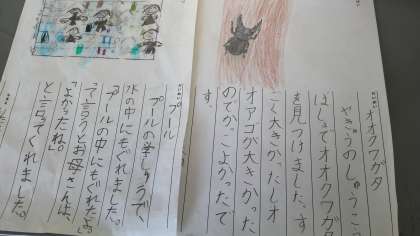 オオクワガタ
やきゅうのしゅうご
はしってオオクワガタ
を見つけました。す
ごく大きかったしオ
オアゴが大きかった
のでかっこよかったで
す。
プール
プールの学しゅうで
水の中にもぐれました。
「プールの中にもぐれたよ」
って言うとお母さんは、
「よかったね。」
と言ってくれました。